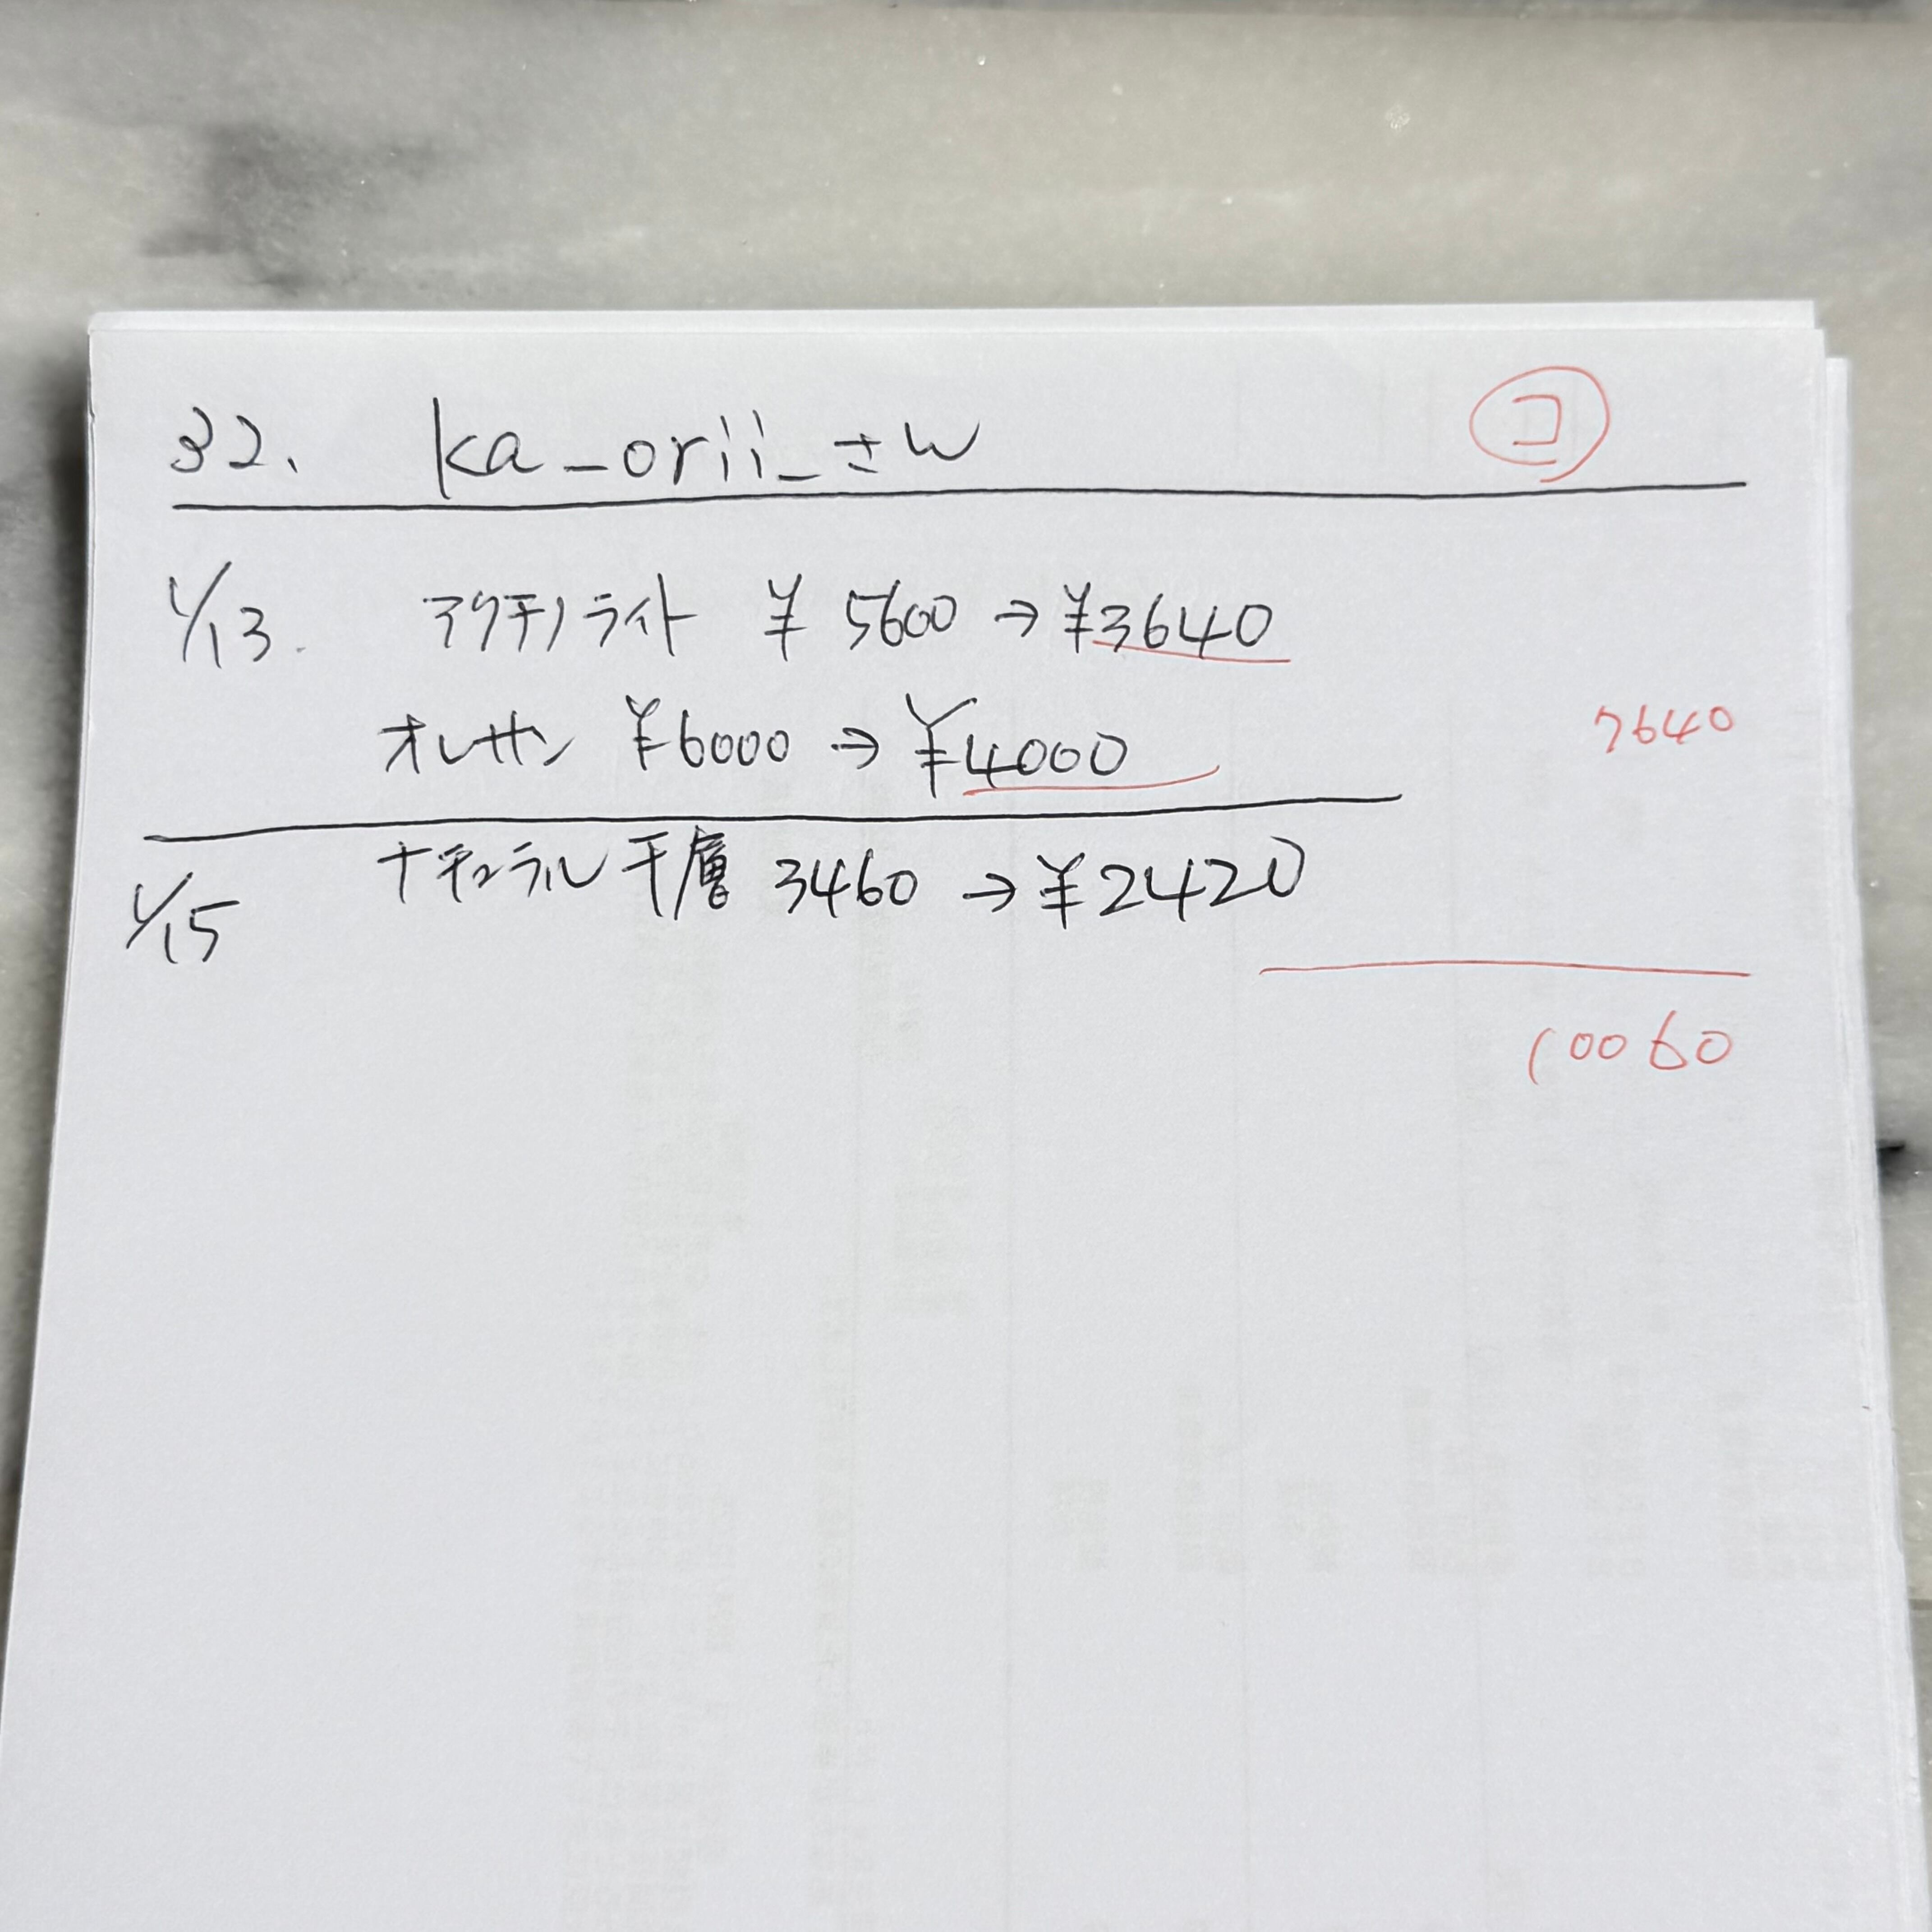 32. ka_orii_さん コ
1/13. アクチノライト ¥ 5600 → ¥3640
オレサン ¥6000 → ¥4000
7640
1/15 ナチュラル千層 3460 → ¥2420
10060